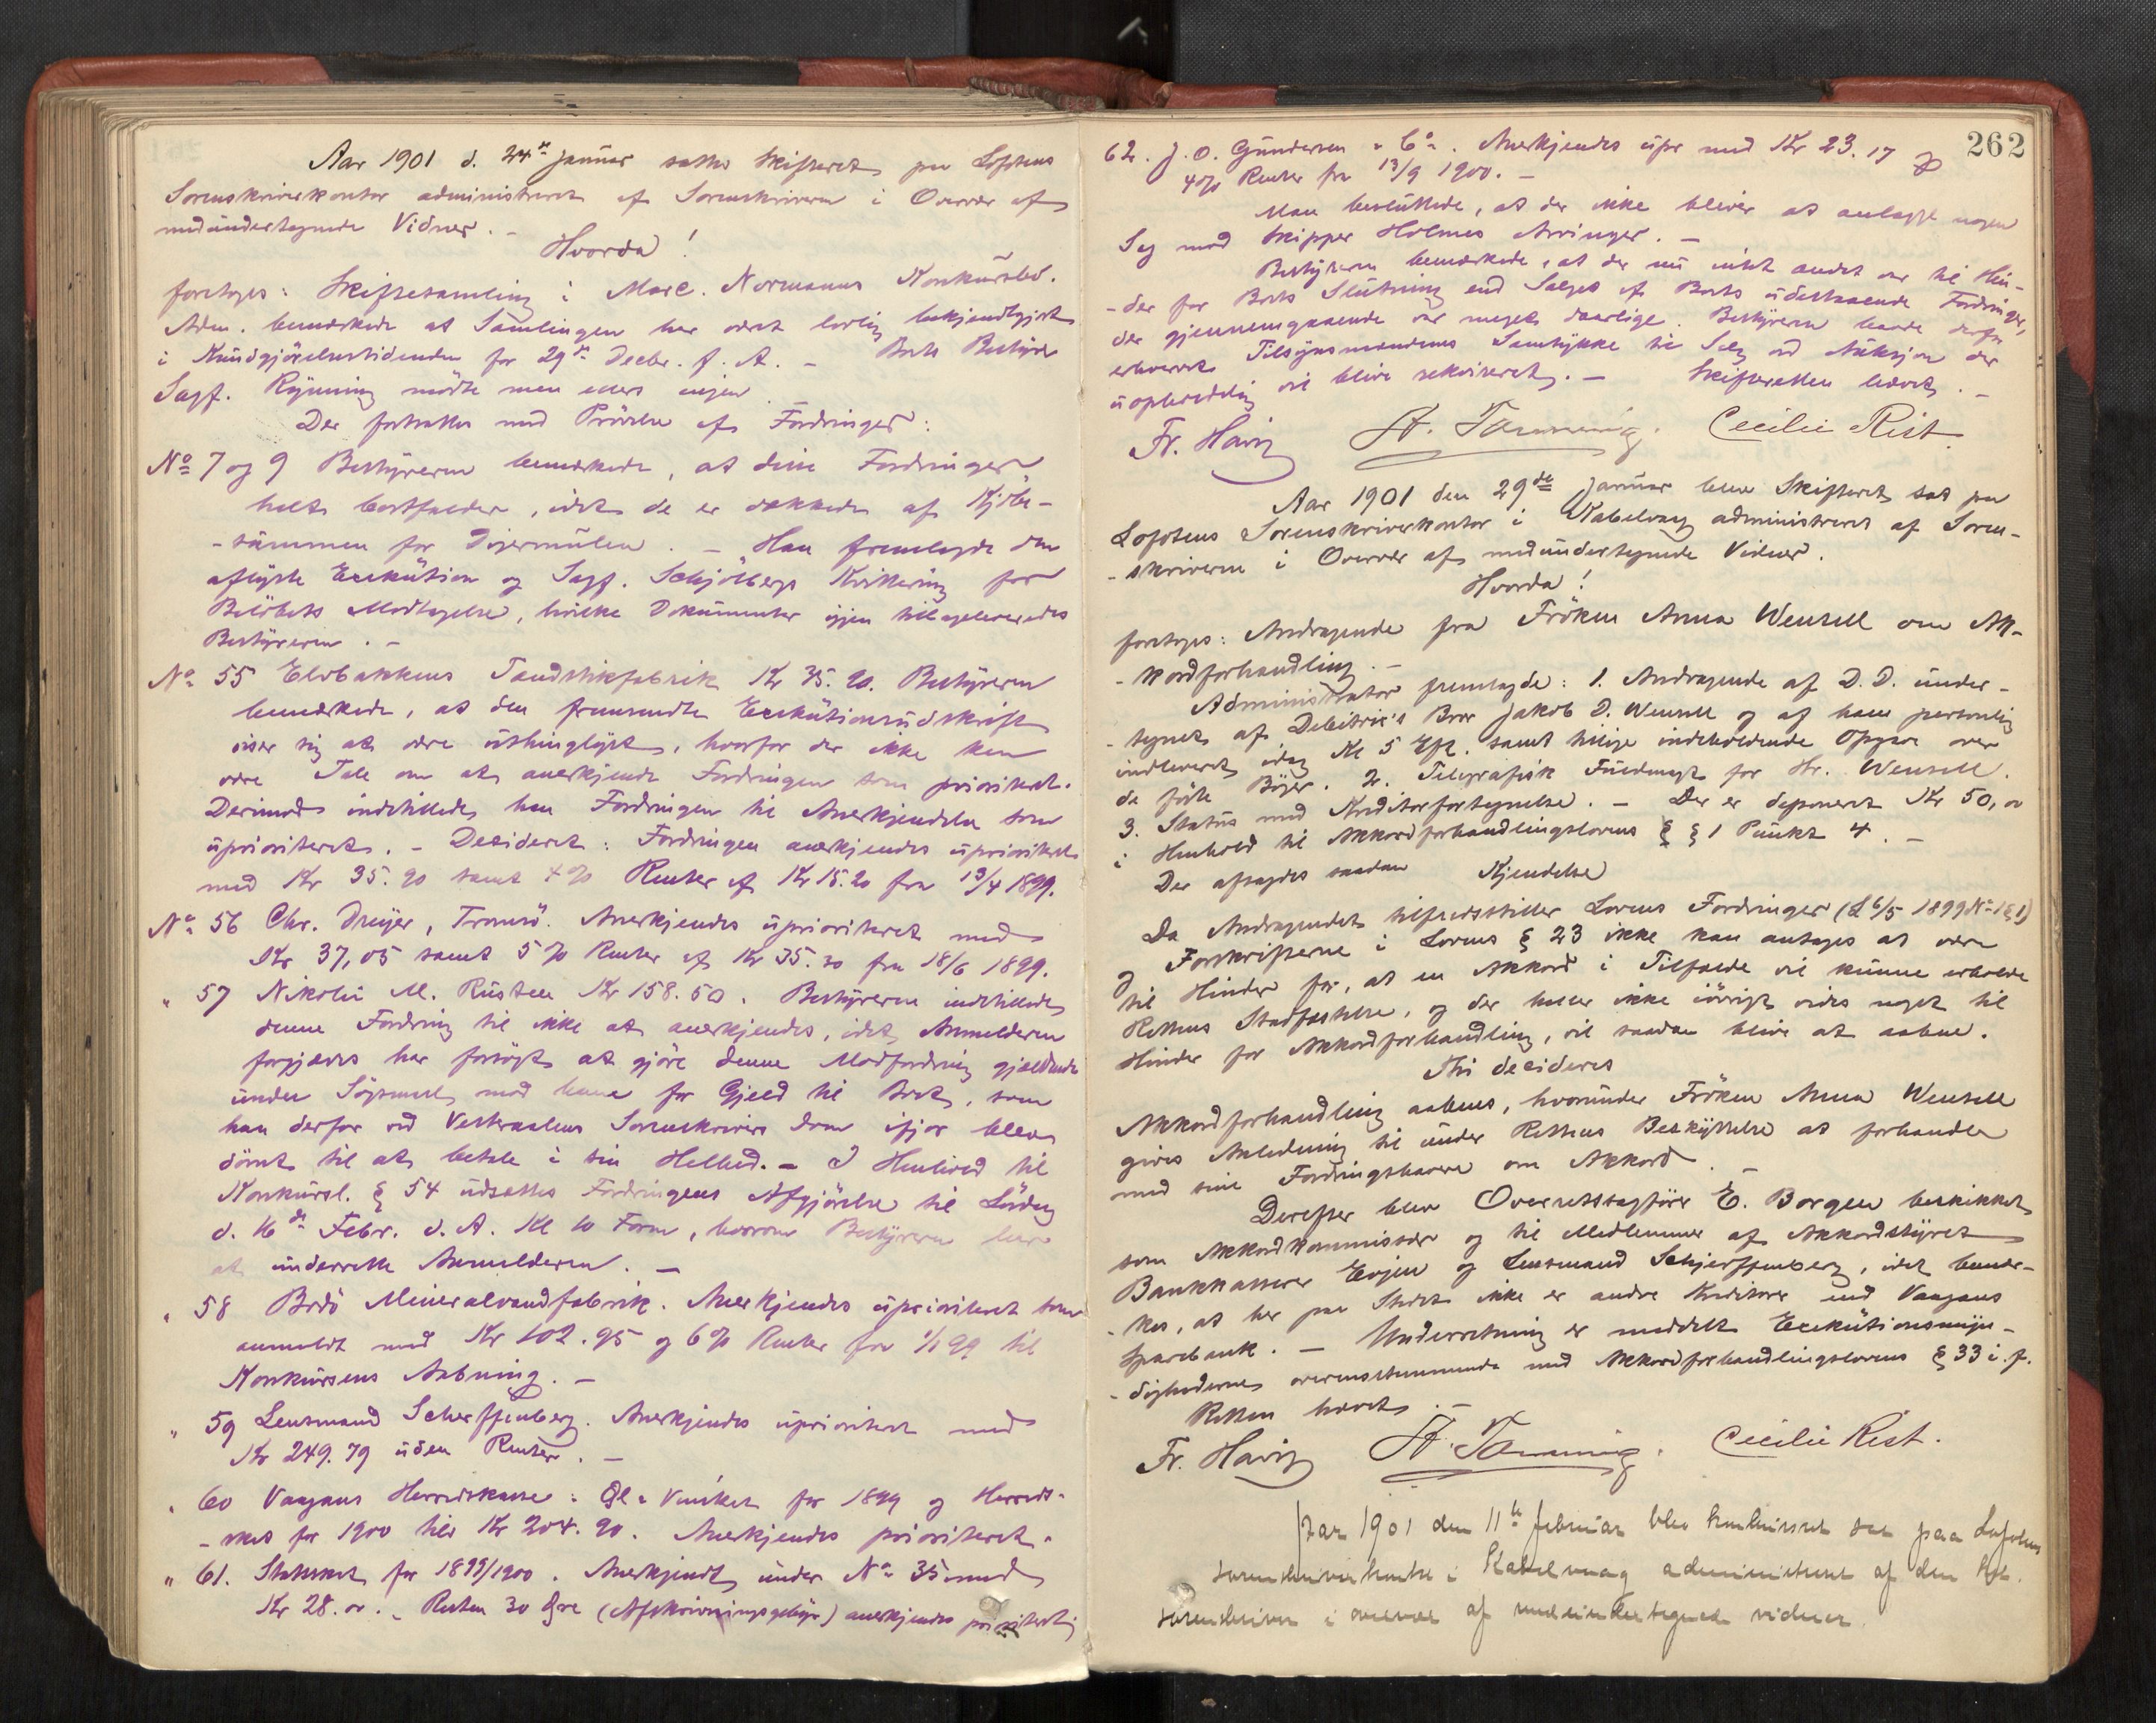 Aar 1901 d. 24de Januar sattes Skifteret paa Lofotens
Sorenskriverkontor administreret af Sorenskriveren i Overvær af
medundertegnede Vidner. -
Hvorda!
foretoges: Skiftesamling i Marc. Normanns Konkursbo.
Adm. bemærkede at Samlingen har været lovlig bekjendtgjort
i Kundgjörelsestidenden for 29de Decbr. f. A. - Boets Bestyrer
Sagf. Rynning mödte men ellers ingen.
Der fortsattes med Prövelse af Fordringer:
No 7 og 9 Bestyreren bemærkede, at disse Fordringer
helt bortfalder, idet de er dækkede af Kjöbe-
-summen for Digermulen. - Han fremlagde den
aflyste Exekution og Sagf. Schjölbergs Kvittering for
Belöbets Modtagelse, hvilke Dokumenter igjen tilbageleveredes
Bestyreren. -
No 55 Elvbakkens Tandstikfabrik Kr 35. 90. Bestyreren
bemærkede, at den fremsendte Exekutionsudskrift
viser sig at være uthinglyst, hvorfor der ikke kan
være Tale om at anerkjende Fordringen som prioriteret.
Derimod indstillede han Fordringen til Anerkjendelse som
uprioriteret. - Decideret: Fordringen anerkjendes uprioriteret
med Kr 35. 90 samt 4 % Renter af Kr 15. 20 fra 13/4 1899.
No 56 Chr. Dreyer, Tromsö. Anerkjendes uprioriteret med
Kr 37,05 samt 5 % Renter af Kr 35. 30 fra 18/6 1899.
" 57 Nikolai M. Rusten Kr 158. 50. Bestyreren indstillede
denne Fordring til ikke at anerkjendes, idet Anmelderen
forgjæves har forsögt at gjöre denne Modfordring gjældende
under Sögsmaal mod ham for Gjeld til Boet, som
han derfor ved Vesteraalens Sorenskrivers Dom ifjor blev
dömt til at betale i sin Helhed. - I Henhold til
Konkursl. § 54 udsattes Fordringens Afgjörelse til Lördag
d. 16de Febr. d. A. Kl 10 Form, hvorom Bestyreren har
at underrette Anmelderen. -
" 58 Bodö Mineralvandfabrik. Anerkjendes uprioriteret som
anmeldt med Kr 102. 95 og 6 % Renter fra 1/1 99 til
Konkursens Aabning. -
" 59 Lensmand Scherffenberg. Anerkjendes uprioriteret med
Kr 249. 79 uden Renter. -
" 60 Vaagans Herredskasse: for 1899 og Herreds-
-skat for 1900 tils Kr 204. 90. Anerkjendes prioriteret.
" 61. Statsskat for 1899/1900. Anerkjendt under No 35 med
Kr 28. 00. - Resten 30 Öre (Afskrivningsgebyr) anerkjendes prioriteret
262
62. J. O. Gundersen & Co. Anerkjendes upr med Kr 23. 17
4 % Renter fra 13/9 1900. -
Man besluttede, at der ikke bliver at anlægge nogen
Sag mod Skipper Holmes Arvinger. -
Bestyreren bemærkede, at der nu intet andet var til Hin-
-der for Boets Slutning end Salget af Boets udestaaende Fordringer,
der gjennemgaaende var meget daarlige. Bestyreren havde derfor
erhvervet Tilsynsmændenes Samtykke til Salg ved Auksjon der
uopholdelig vil blive rekvireret. - Skifteretten hævet. -
Fr. Havig A. Tamming. Cecilie Rist
Aar 1901 den 29de Januar blev Skifteret sat paa
Lofotens Sorenskriverkontor i Kabelvaag administreret af Soren-
-skriveren i Overvær af medundertegnede Vidner.
Hvorda!
foretoges: Andragende fra Fröken Anna Wensell om Ak-
-kordforhandling. -
Administrator fremlagde: 1. Andragende af D. D. under-
-tegnet af Debitrix's Bror Jakob D. Wensell og af ham personlig
indleveret idag Kl 5 Eft. samt tillige indeholdende Opgave over
de förte Böger. 2. Telegrafisk Fuldmagt for Hr. Wensell.
3. Status med Kreditorfortegnelse. - Der er deponeret Kr 50,00
i Henhold til Akkordforhandlingslovens § 1 Punkt 4. -
Der afsagdes saadan Kjendelse
Da Andragendet tilfredsstiller Lovens Fordringer (L 6/5 1899 No 1 § 1)
og Forskrifterne i Lovens § 23 ikke kan antages at være
til Hinder for, at en Akkord i Tilfælde vil kunne erholde
Rettens Stadfæstelse, og der heller ikke iövrigt vides noget til
Hinder for Akkordforhandling, vil saadan blive at aabne.
Thi decideres
Akkordforhandling aabnes, hvorunder Fröken Anna Wensell
gives Anledning til under Rettens Beskyttelse at forhandle
med sine Fordringshavere om Akkord. -
Derefter blev Overretssagförer E. Borgen beskikket
som Akkordkommissær og til Medlemmer af Akkordstyret
Bankkasserer Evjen og Lensmand Schjerffenberg, idet bemær-
-kes, at her paa Stedet ikke er andre Kreditorer end Vaagans
Sparebank. - Underretning er meddelt Exekutionsmyn-
-dighederne overensstemmende med Akkordforhandlingslovens § 33 i. f.
Retten hævet. -
Fr. Havig A. Tamming. Cecilie Rist.
Aar 1901 den 11te februar blev sat paa Lofotens
sorenskriverkontor i Kabelvaag administreret af den
sorenskriver i overvær af medundertegnede vidner.